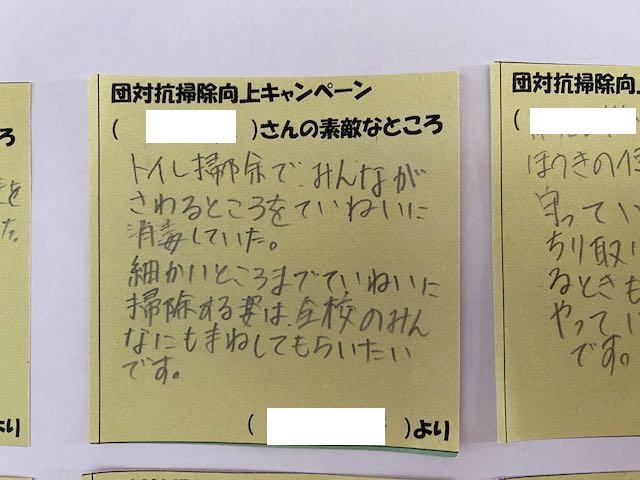 団対抗掃除向上キャンペーン
( )さんの素敵なところ
トイレ掃除で、みんなが
さわるところをていねいに
消毒していた。
細かいところまでていねいに
掃除する姿は、全校のみん
なにもまねしてもらいたい
です。
( )より
団対抗掃除向上
(
ほうきの
守ってい
ちり取り
るときも
やってい
です。
ろ
を
た。
より